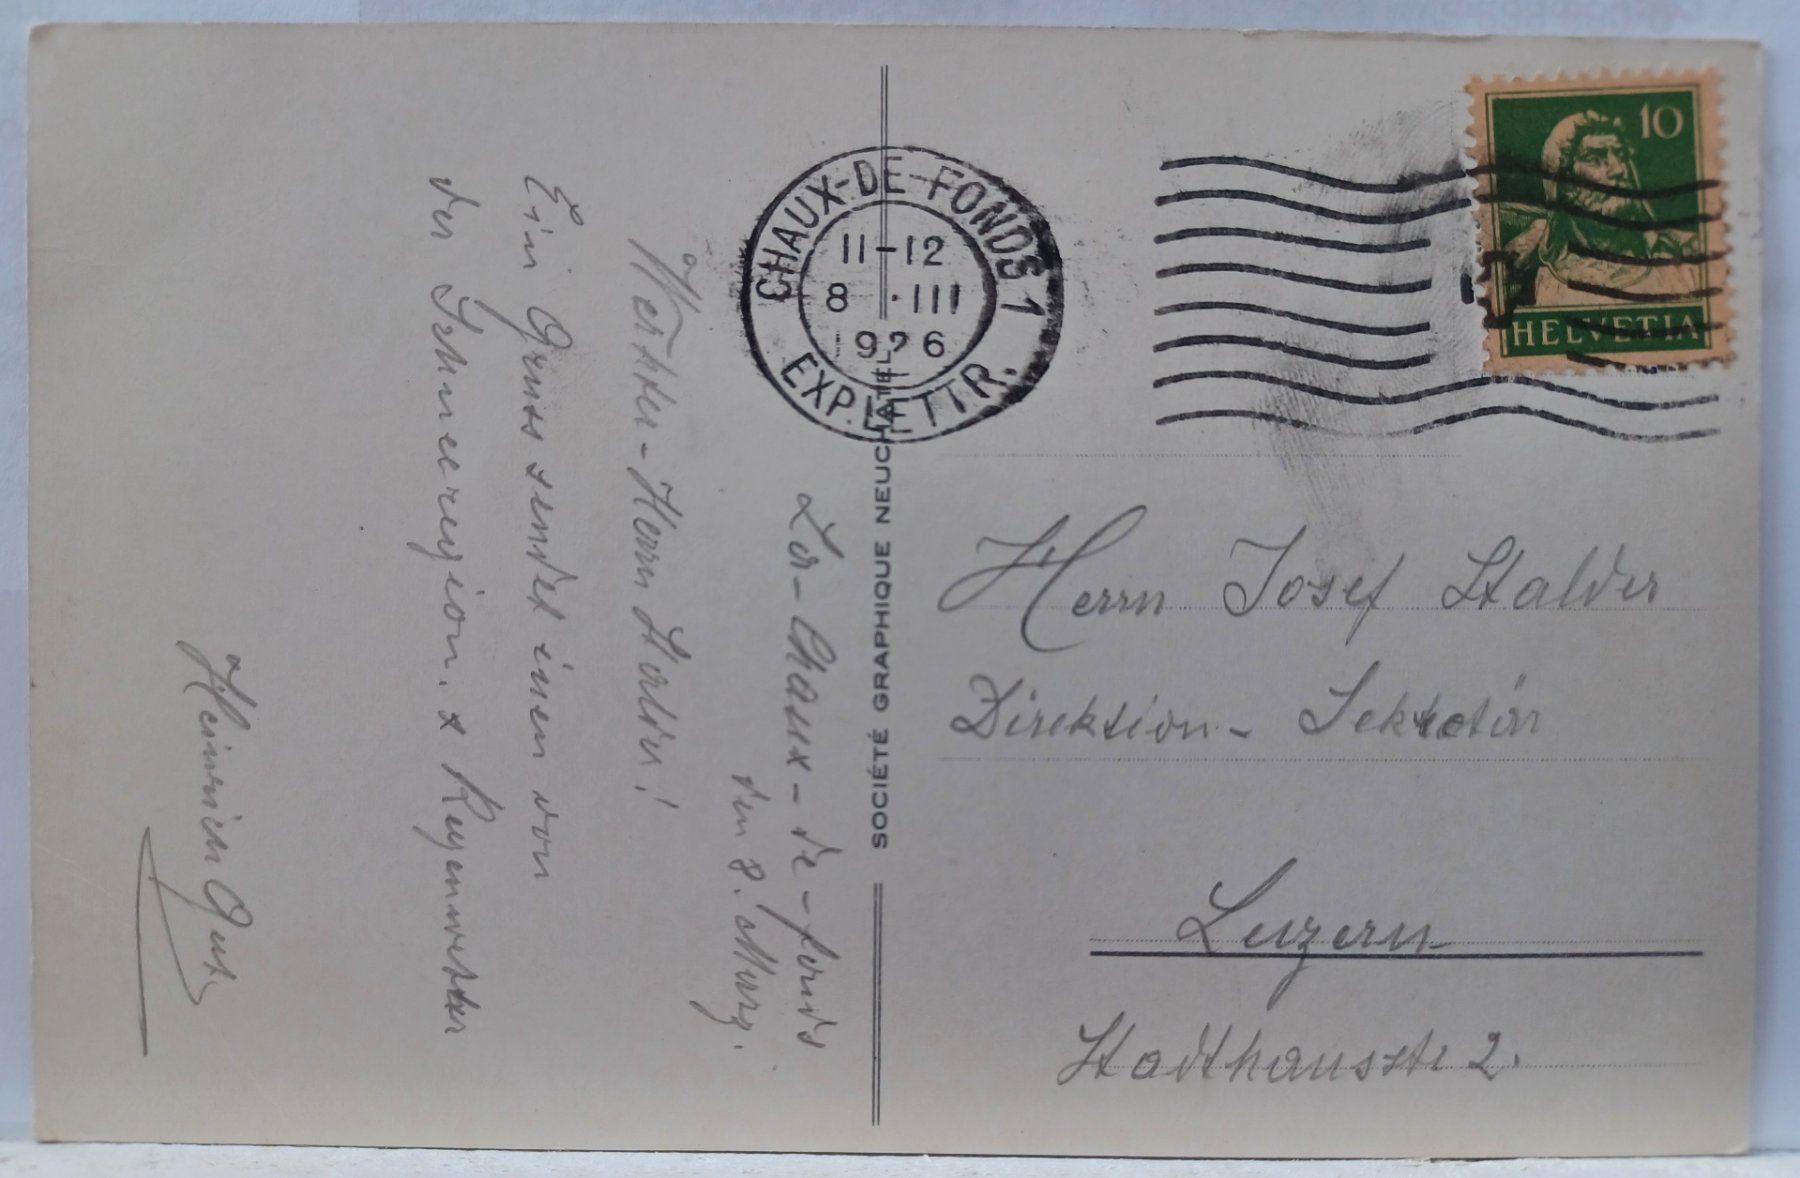 La-Chaux-de-fonds
den 8. März.
Werther-Herrn Stalder!
Ein Gruss sendet ihnen von
der Schneeregion. & Regenwetter
Heinrich Gut
SOCIÉTÉ GRAPHIQUE NEUCHATEL
CHAUX-DE-FONDS 1
11-12
8 ·III
1926
EXP. LETTR.
10
HELVETIA
Herrn Josef Stalder
Direktion-Sekretär
Luzern
Stadthausstr 2.